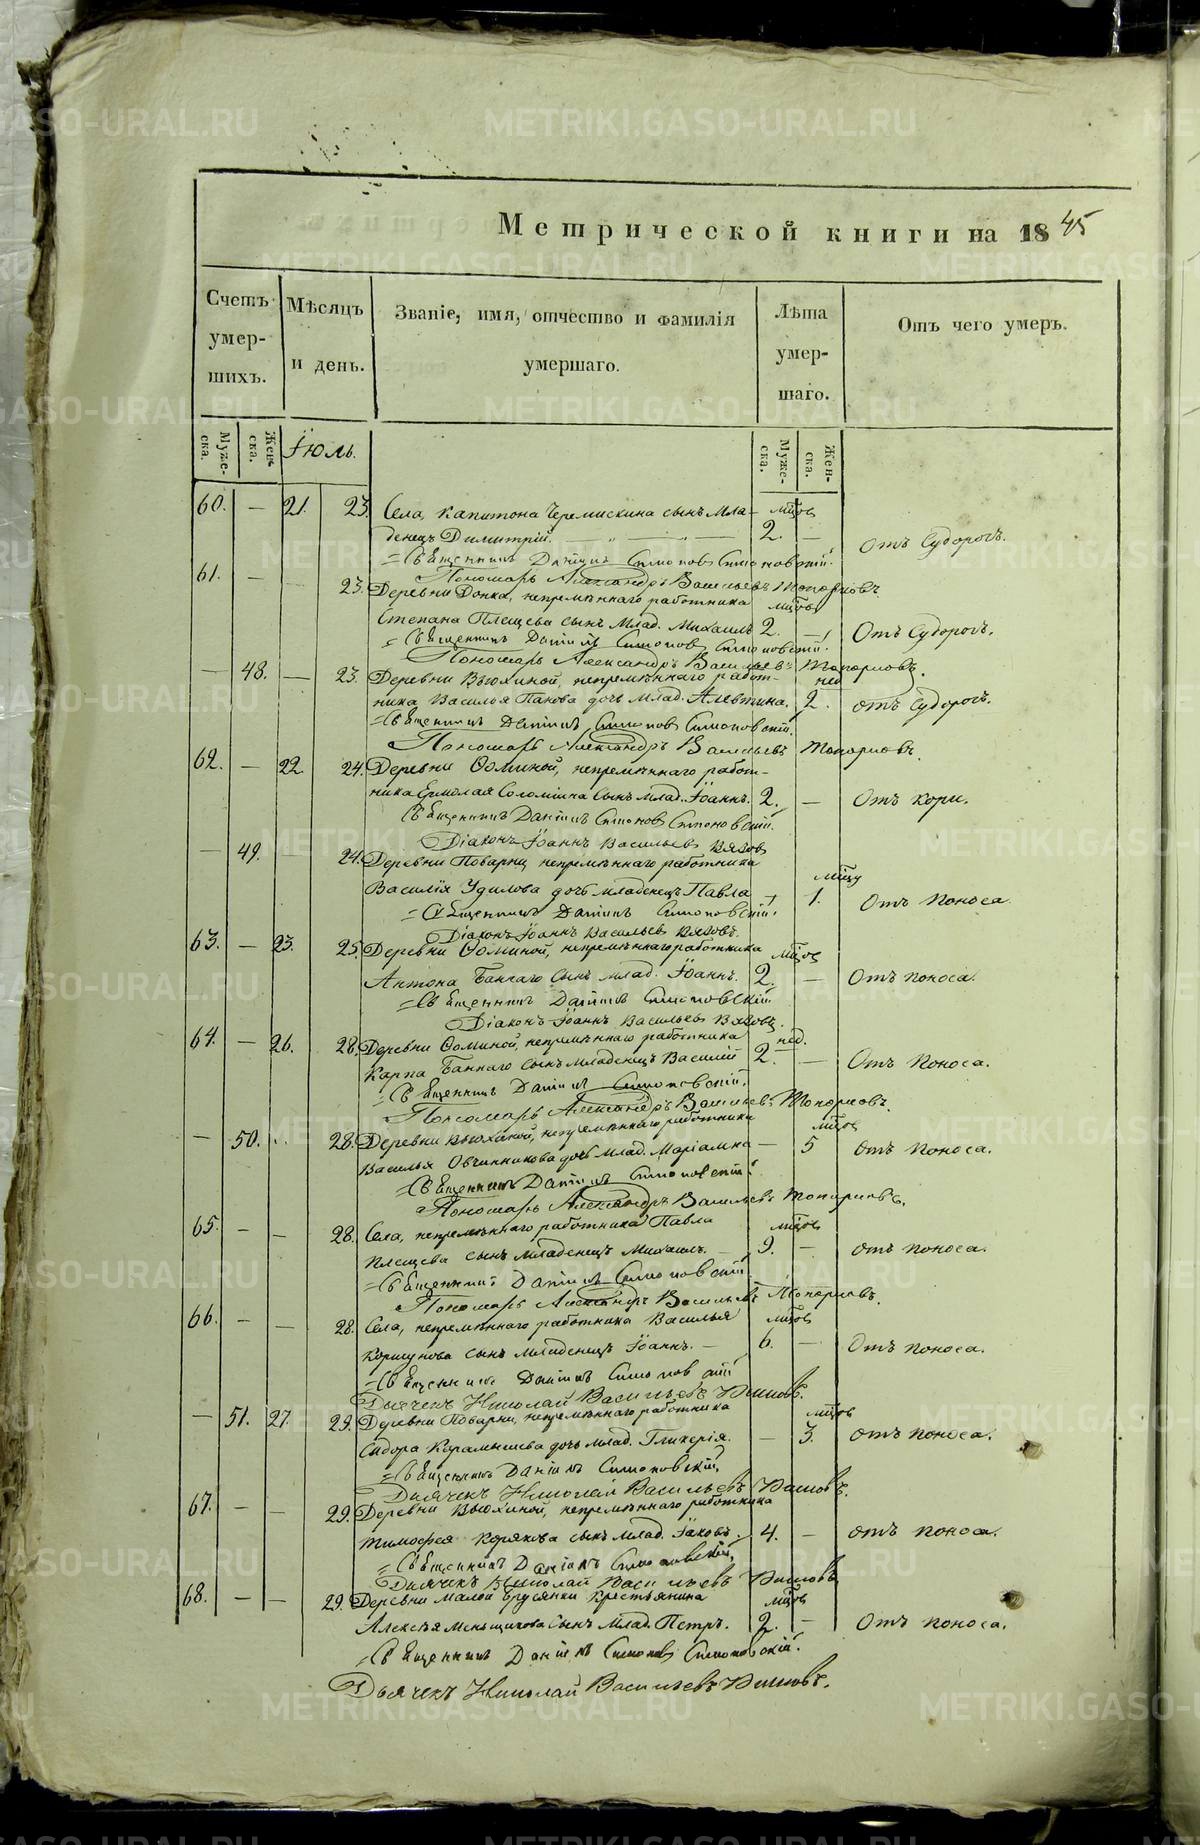 Метрической книги на 1845
Счетъ умер-шихъ.
Мѣсяцъ и день.
Званіе, имя, отчество и фамилія умершаго.
Лѣта умер-шаго.
Отъ чего умеръ.
Муже-ска.
Жен-ска.
Іюль.
Муже-ска.
Жен-ска.
60. — 21. 23. Села, Капитона Черемискина сынъ Мла-
денецъ Димитрій. 2. — Отъ Судорогъ.
Священникъ Даніилъ Симоновъ Симоновскій.
Пономарь Александръ Васильевъ Топорковъ.
61. — 23. Деревни Донка, непремѣннаго работника
Степана Плещева сынъ Млад. Михаилъ 2. — Отъ Судорогъ.
Священникъ Даніилъ Симоновъ Симоновскій.
Пономарь Александръ Васильевъ Топорковъ.
— 48. — 23. Деревни Вьюхиной, непремѣннаго работ-
ника Василья Панова дочь Млад. Алевтина. 2. отъ Судорогъ.
Священникъ Даніилъ Симоновъ Симоновскій.
Пономарь Александръ Васильевъ Топорковъ.
62. — 22. 24. Деревни Ѳоминой, непремѣннаго работ-
ника Ермолая Соломина сынъ Млад. Іоаннъ. 2. — Отъ кори.
Священникъ Даніилъ Симоновъ Симоновскій.
Діаконъ Іоаннъ Васильевъ Вязовъ
— 49. 24. Деревни Поварни, непремѣннаго работника
Василія Удилова дочь младенецъ Павла — 1. Отъ Поноса.
Священникъ Даніилъ Симоновскій.
Діаконъ Іоаннъ Васильевъ Вязовъ.
63. — 23. 25. Деревни Ѳоминой, непремѣннаго работника
Антона Баннаго сынъ млад. Іоаннъ. 2. — Отъ поноса.
Священникъ Даніилъ Симоновскій
Діаконъ Іоаннъ Васильевъ Вязовъ.
64. — 26. 28. Деревни Ѳоминой, непремѣннаго работника нед.
Карпа Баннаго сынъ младенецъ Василій 2. — Отъ Поноса.
Священникъ Даніилъ Симоновскій.
Пономарь Александръ Васильевъ Топорковъ.
— 50. 28. Деревни Вьюхиной, непремѣннаго работника
Василья Овчинникова дочь млад. Маріамна — 5 Отъ Поноса.
Священникъ Даніилъ Симоновскій.
Пономарь Александръ Васильевъ Топорковъ.
65. — — 28. Села, непремѣннаго работника Павла
Плещева сынъ младенецъ Михаилъ. 9. — отъ поноса.
Священникъ Даніилъ Симоновскій
Пономарь Александръ Васильевъ Топорковъ.
66. — — 28. Села, непремѣннаго работника Василья
Коршунова сынъ младенецъ Іоаннъ. 6. — Отъ поноса.
Священникъ Даніилъ Симоновскій
Дьячекъ Николай Васильевъ
— 51. 27. 29. Деревни Поварни, непремѣннаго работника
Сидора Карамышева дочь млад. Гликерія. — 3. отъ поноса.
Священникъ Даніилъ Симоновскій,
Дьячекъ Николай Васильевъ
67. — — 29. Деревни Вьюхиной, непремѣннаго работника
Тимофея Корякова сынъ Млад. Іаковъ. 4. — отъ поноса.
Священникъ Даніилъ Симоновскій,
Дьячекъ Николай Васильевъ
68. — — 29. Деревни Малой Брусянки Крестьянина
Алексѣя Меньщикова Сынъ Млад. Петръ. 2. — Отъ поноса.
Священникъ Даніилъ Симоновъ Симоновскій.
Дьячекъ Николай Васильевъ
METRIKI.GASO-URAL.RU